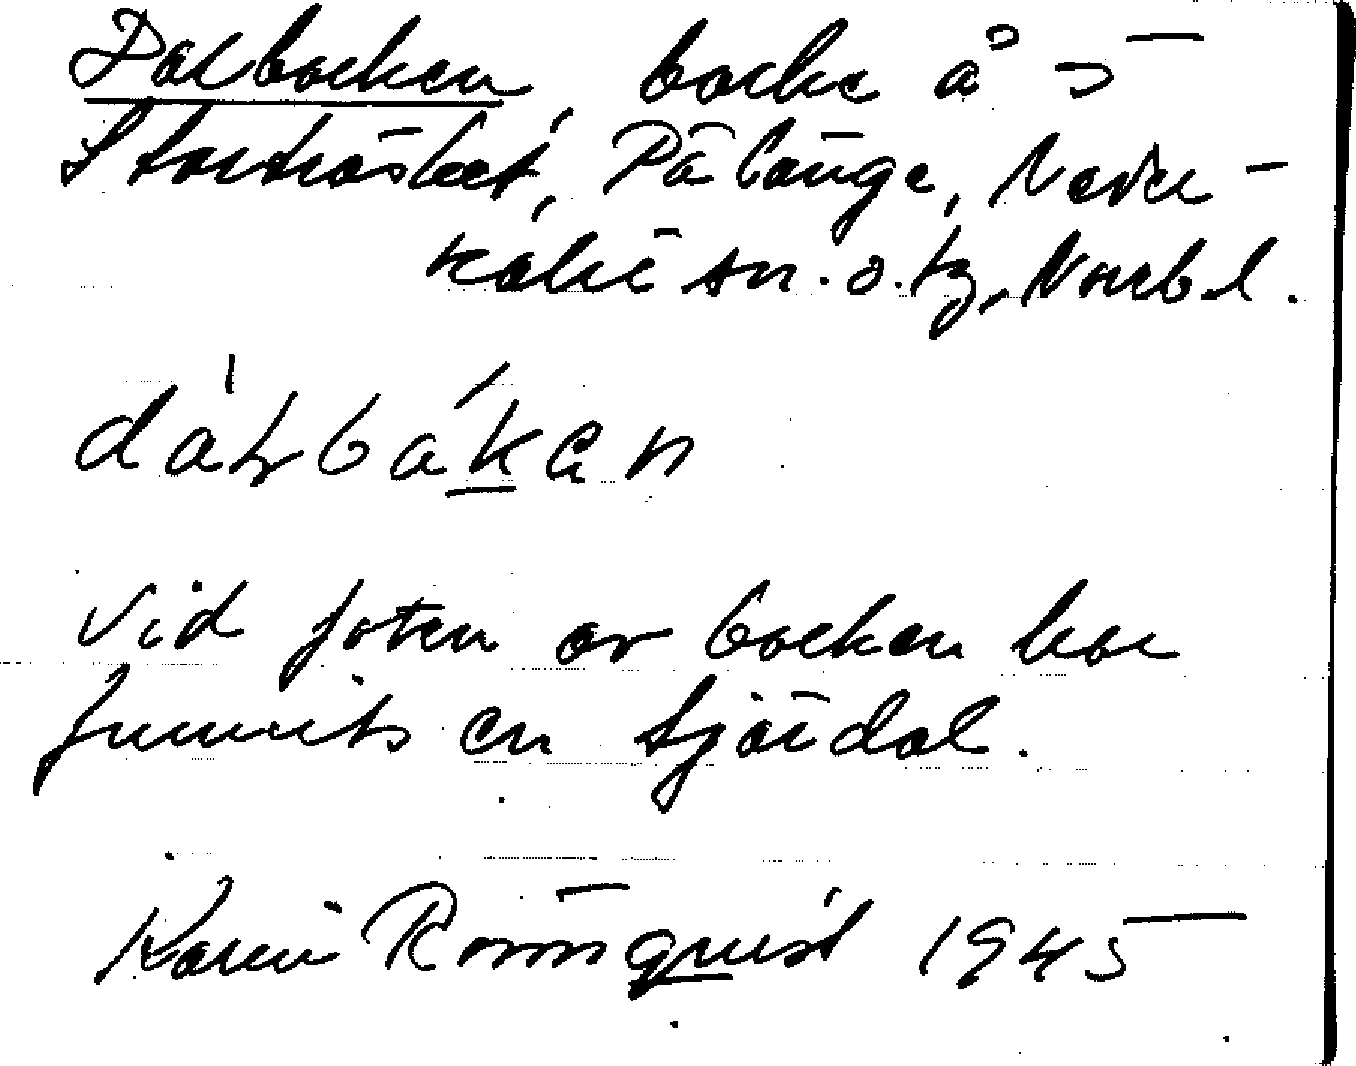 Dalbacken, backe å
Storträsket, Pålänge, Neder-
kalix sn. o. tg, Norrb. l.
dàʈbákan
Vid foten av backen har
funnits en tjärdal.
Karin Rönnqvist 1945